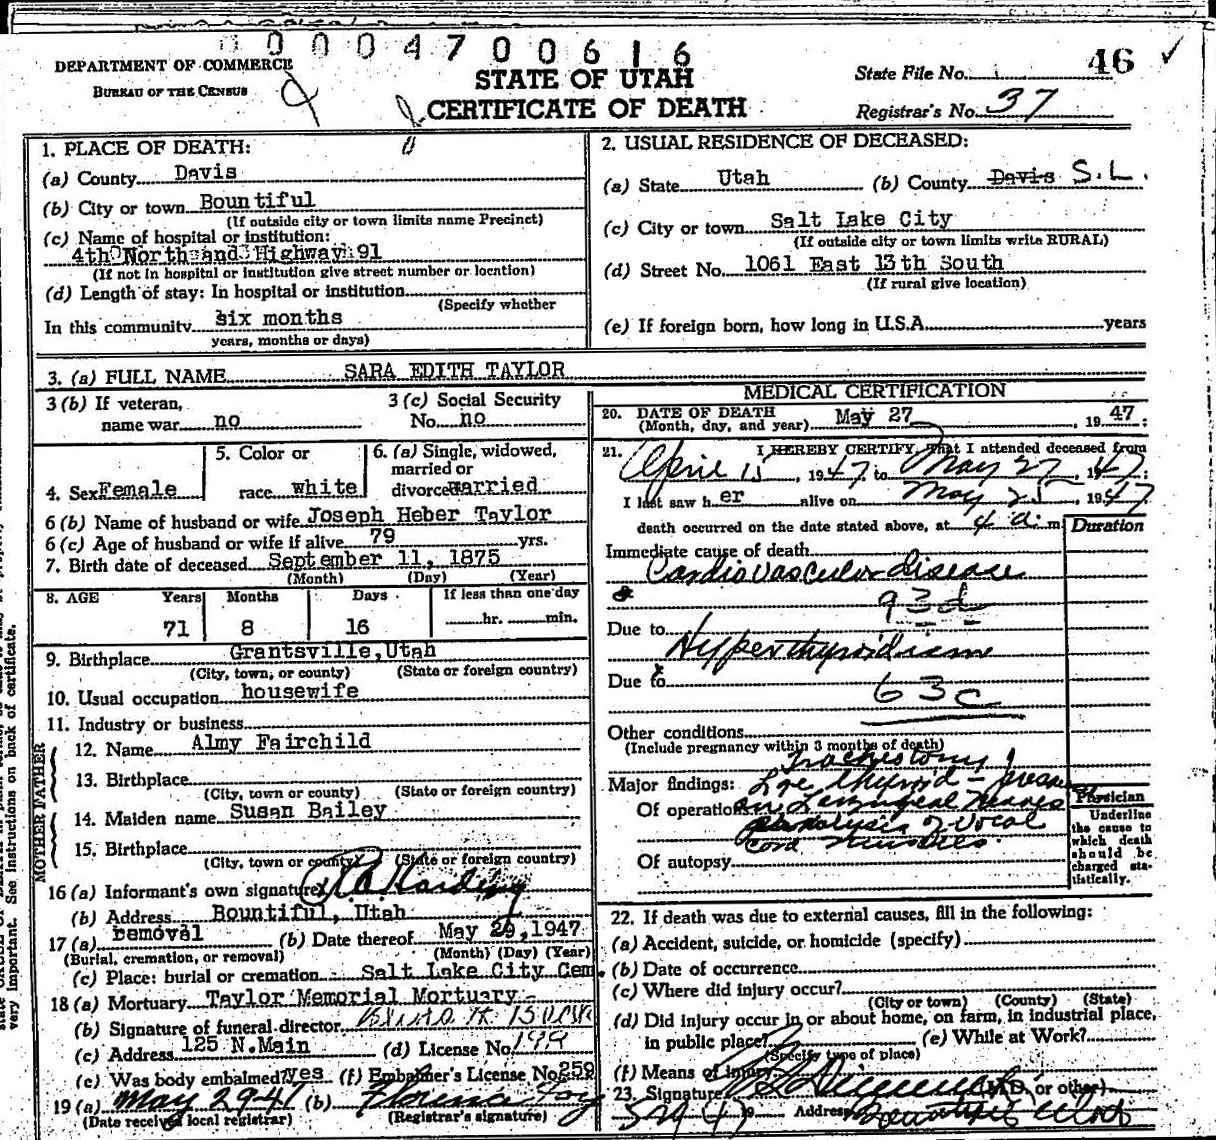 0004700616
DEPARTMENT OF COMMERCE
BUREAU OF THE CENSUS
STATE OF UTAH
CERTIFICATE OF DEATH
State File No. 46
Registrar's No. 37
1. PLACE OF DEATH:
(a) County Davis
(b) City or town Bountiful
(If outside city or town limits name Precinct)
(c) Name of hospital or institution:
4th North and Highway 91
(If not in hospital or institution give street number or location)
(d) Length of stay: In hospital or institution
(Specify whether
In this community six months
years, months or days)
2. USUAL RESIDENCE OF DECEASED:
(a) State Utah (b) County Davis S.L.
(c) City or town Salt Lake City
(If outside city or town limits write RURAL)
(d) Street No. 1061 East 13th South
(If rural give location)
(e) If foreign born, how long in U.S.A. years
3. (a) FULL NAME SARA EDITH TAYLOR
3 (b) If veteran, name war no
3 (c) Social Security No. no
4. Sex Female
5. Color or race white
6. (a) Single, widowed, married or divorced married
6 (b) Name of husband or wife Joseph Heber Taylor
6 (c) Age of husband or wife if alive 79 yrs.
7. Birth date of deceased September 11, 1875
(Month) (Day) (Year)
8. AGE Years Months Days If less than one day
71 8 16 hr. min.
9. Birthplace Grantsville, Utah
(City, town, or county) (State or foreign country)
10. Usual occupation housewife
11. Industry or business
FATHER
12. Name Almy Fairchild
13. Birthplace
(City, town or county) (State or foreign country)
MOTHER
14. Maiden name Susan Bailey
15. Birthplace
(City, town or county) (State or foreign country)
16 (a) Informant's own signature Harding
(b) Address Bountiful, Utah
17 (a) removal (b) Date thereof May 29, 1947
(Burial, cremation, or removal) (Month) (Day) (Year)
(c) Place: burial or cremation Salt Lake City Cem.
18 (a) Mortuary Taylor Memorial Mortuary
(b) Signature of funeral director
(c) Address 125 N. Main (d) License No. 199
(e) Was body embalmed? yes (f) Embalmer's License No. 259
19 (a) May 29-47 (b) Florence Foy
(Date received local registrar) (Registrar's signature)
MEDICAL CERTIFICATION
20. DATE OF DEATH
(Month, day, and year) May 27, 1947:
21. I HEREBY CERTIFY, That I attended deceased from
April 15, 1947, to May 27, 1947;
I last saw her alive on May 25, 1947
death occurred on the date stated above, at 4 a. m
Duration
Immediate cause of death
Cardiovascular disease
93d
Due to
Hyperthyroidism
Due to
63c
Other conditions
(Include pregnancy within 3 months of death)
Tracheotomy
Major findings: Lge thyroid -
Of operations on Laryngeal Nerves
paralysis of Vocal
cord muscles.
Of autopsy
Physician
Underline
the cause to
which death
should be
charged sta-
tistically.
22. If death was due to external causes, fill in the following:
(a) Accident, suicide, or homicide (specify)
(b) Date of occurrence
(c) Where did injury occur?
(City or town) (County) (State)
(d) Did injury occur in or about home, on farm, in industrial place,
in public place? (e) While at Work?
(Specify type of place)
(f) Means of injury
23. Signature (M.D. or other)
5 29 47 19 Address Bountiful Utah
very important. See instructions on back of certificate.